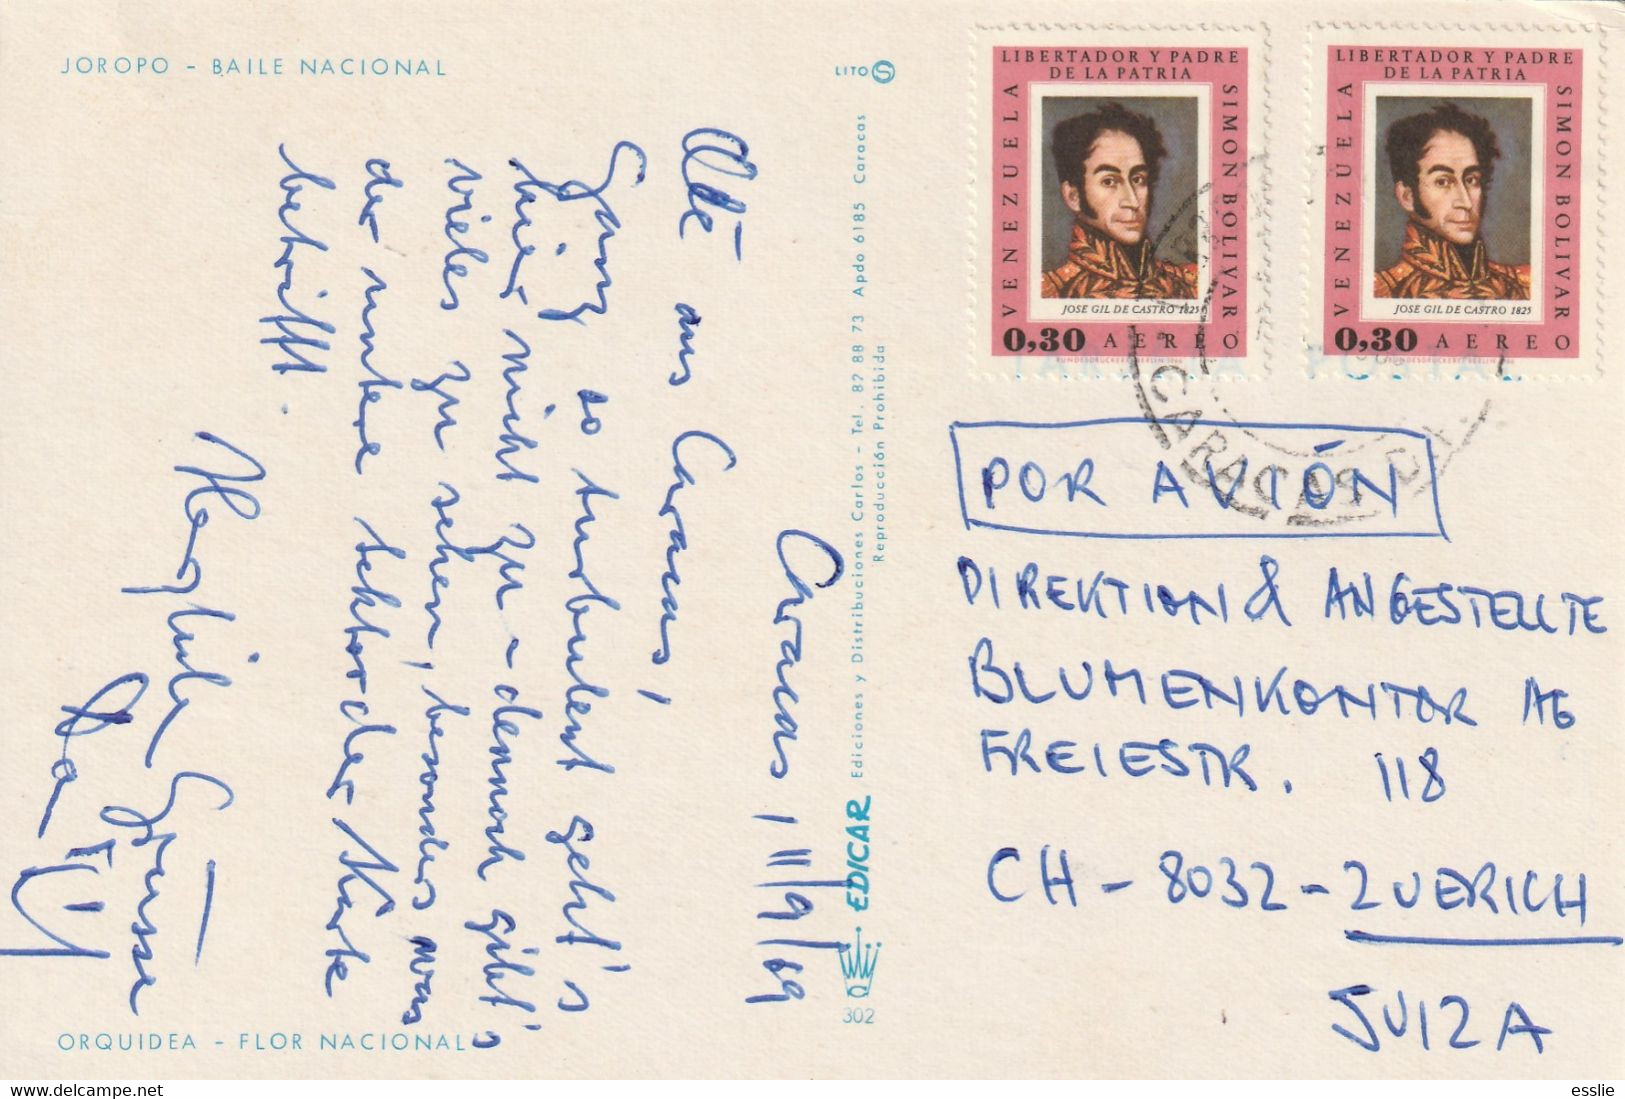 JOROPO – BAILE NACIONAL
LITO S
Caracas, 11/9/69
Olé aus Caracas,
Ganz so turbulent geht's
hier nicht zu – dennoch gibt's
vieles zu sehen, besonders was
der
betrifft.
Herzliche Grüsse
ORQUIDEA – FLOR NACIONAL
302 EDICAR Ediciones y Distribuciones Carlos – Tel. 82 88 73 Apdo 6185 Caracas
Reproducción Prohibida
LIBERTADOR Y PADRE
DE LA PATRIA
VENEZUELA
SIMON BOLIVAR
JOSE GIL DE CASTRO 1825
0,30 AEREO
BUNDESDRUCKEREI BERLIN 1966
LIBERTADOR Y PADRE
DE LA PATRIA
VENEZUELA
SIMON BOLIVAR
JOSE GIL DE CASTRO 1825
0,30 AEREO
BUNDESDRUCKEREI BERLIN 1966
TARJETA POSTAL
CARACAS
POR AVIÓN
DIREKTION & ANGESTELLTE
BLUMENKONTOR AG
FREIESTR. 118
CH – 8032 – ZUERICH
SUIZA
esslie